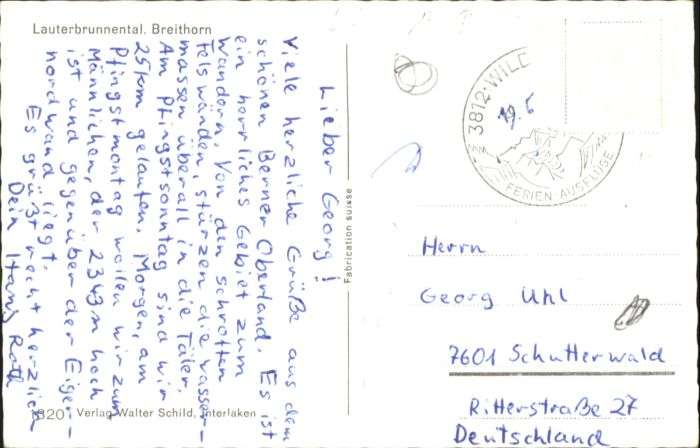 Lauterbrunnental. Breithorn
Lieber Georg!
Viele herzliche Grüße aus dem
schönen Berner Oberland. Es ist
ein herrliches Gebiet zum
Wandern. Von den schroffen
Felswänden, stürzen die Wasser-
massen überall in die Täler.
Am Pfingstsonntag sind wir
25km gelaufen. Morgen, am
Pfingstmontag wollen wir zum
Männlichen, der 2343m hoch
ist und gegenüber der Eiger-
nordwand liegt.
Es grüßt recht herzlich
Dein Hans Roth
1820 Verlag Walter Schild, Interlaken
Fabrication suisse
3812 · WILD
19.5
FERIEN AUSFLÜGE
Herrn
Georg Uhl
7601 Schutterwald
Ritterstraße 27
Deutschland